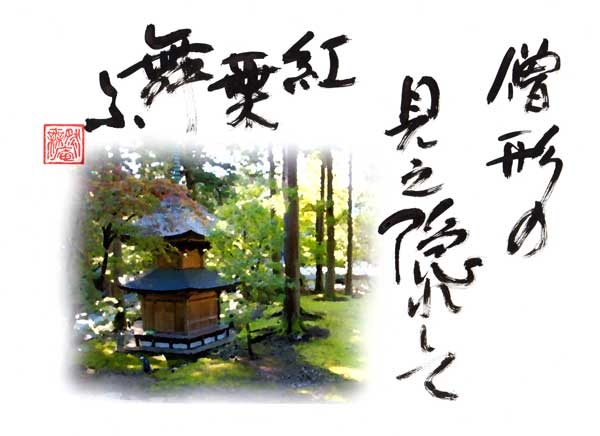 僧形の
見え隠れして
紅葉舞ふ